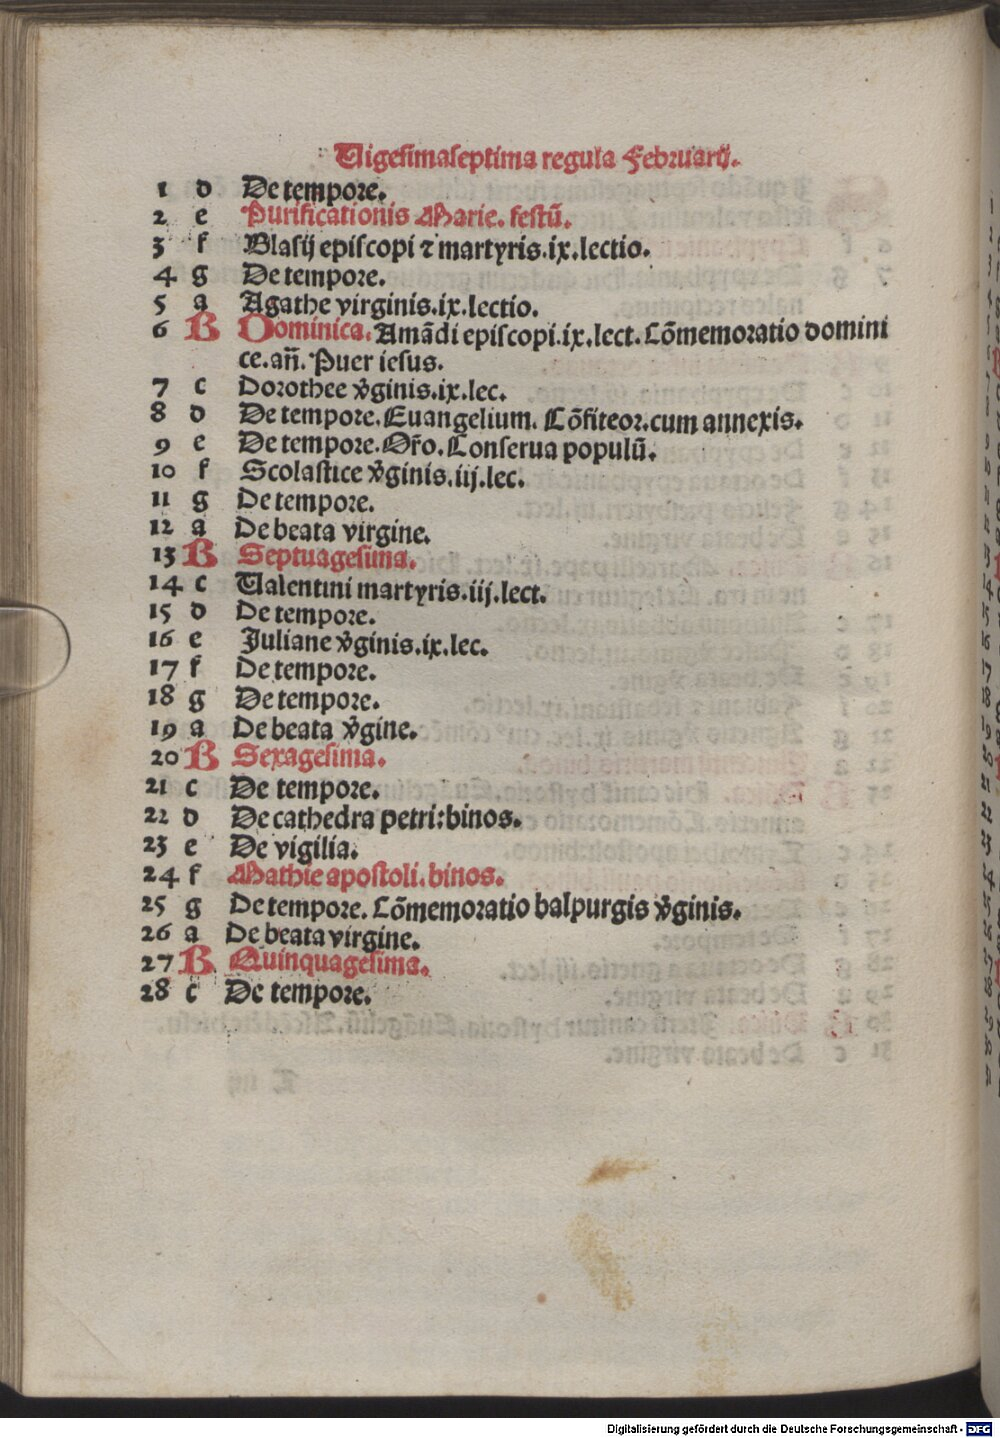 Uigesimaseptima regula Februarij.
1 d De tempore.
2 e Purificationis Marie. festū.
3 f Blasij episcopi ⁊ martyris.ix.lectio.
4 g De tempore.
5 a Agathe virginis.ix.lectio.
6 B Dominica. Amādi episcopi.ix.lect. Cōmemoratio domini
ce.añ. Puer iesus.
7 c Dorothee v̄ginis.ix.lec.
8 d De tempore. Euangelium. Cōfiteor.cum annexis.
9 e De tempore. Or̄o. Conserua populū.
10 f Scolastice v̄ginis.iij.lec.
11 g De tempore.
12 a De beata virgine.
13 B Septuagesima.
14 c Ualentini martyris.iij.lect.
15 d De tempore.
16 e Juliane v̄ginis.ix.lec.
17 f De tempore.
18 g De tempore.
19 a De beata v̄gine.
20 B Sexagesima.
21 c De tempore.
22 d De cathedra petri:binos.
23 e De vigilia.
24 f Mathie apostoli.binos.
25 g De tempore. Cōmemoratio balpurgis v̄ginis.
26 a De beata virgine.
27 B Quinquagesima.
28 c De tempore.
Digitalisierung gefördert durch die Deutsche Forschungsgemeinschaft - DFG